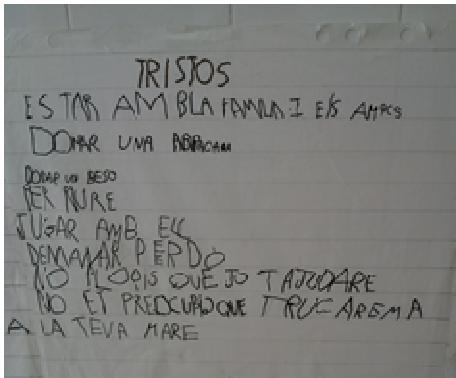 TRISTOS
ESTAR AMB LA FAMILA I ELS AMICS
DONAR UNA ABRAÇADA
DONAR UN BESO
FER RIURE
JUGAR AMB ELL
DEMANAR PERDÓ
NO PLORIS QUE JO TAJUDARE
NO ET PREOCUPIS QUE TRUCAREM A
A LA TEVA MARE